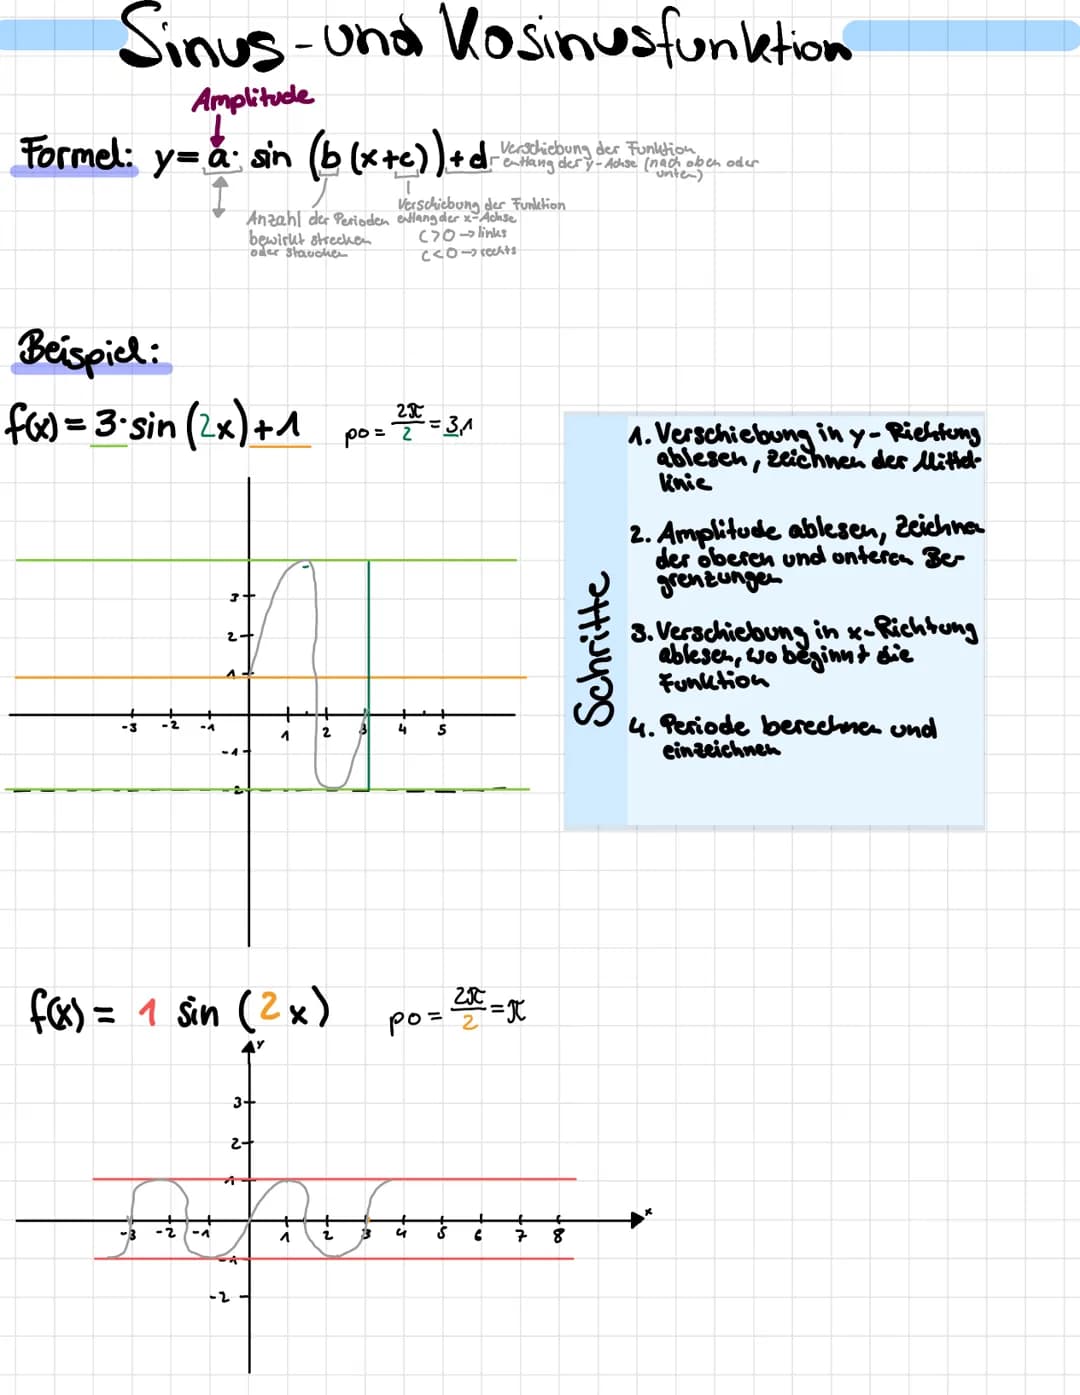 Sinus- und Kosinusfunktion
Amplitude
Formel: y = a · sin (b (x+c)) + d
Verschiebung der Funktion
entlang der y-Achse (nach oben oder
unten)
Verschiebung der Funktion
entlang der x-Achse
c>0 → links
c<0 → rechts
Anzahl der Perioden
bewirkt strecken
oder stauchen
Beispiel:
f(x) = 3·sin (2x)+1
po = 2π/2 = 3,1
1. Verschiebung in y-Richtung
ablesen, zeichnen der Mittel-
linie
2. Amplitude ablesen, Zeichnen
der oberen und unteren Be-
grenzungen
3. Verschiebung in x-Richtung
ablesen, wo beginnt die
Funktion
4. Periode berechnen und
einzeichnen
Schritte
3
2
1
-3 -2 -1 1 2 3 4 5
-1
-2
f(x) = 1 sin (2x)
po = 2π/2 = π
y
3
2
1
x
-3 -2 -1 1 2 3 4 5 6 7 8
-1
-2